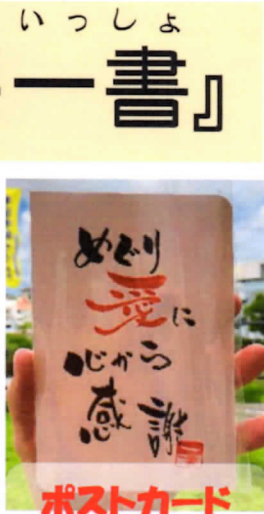 いっしょ
一書』
めぐり
愛に
心から
感謝
ポストカード